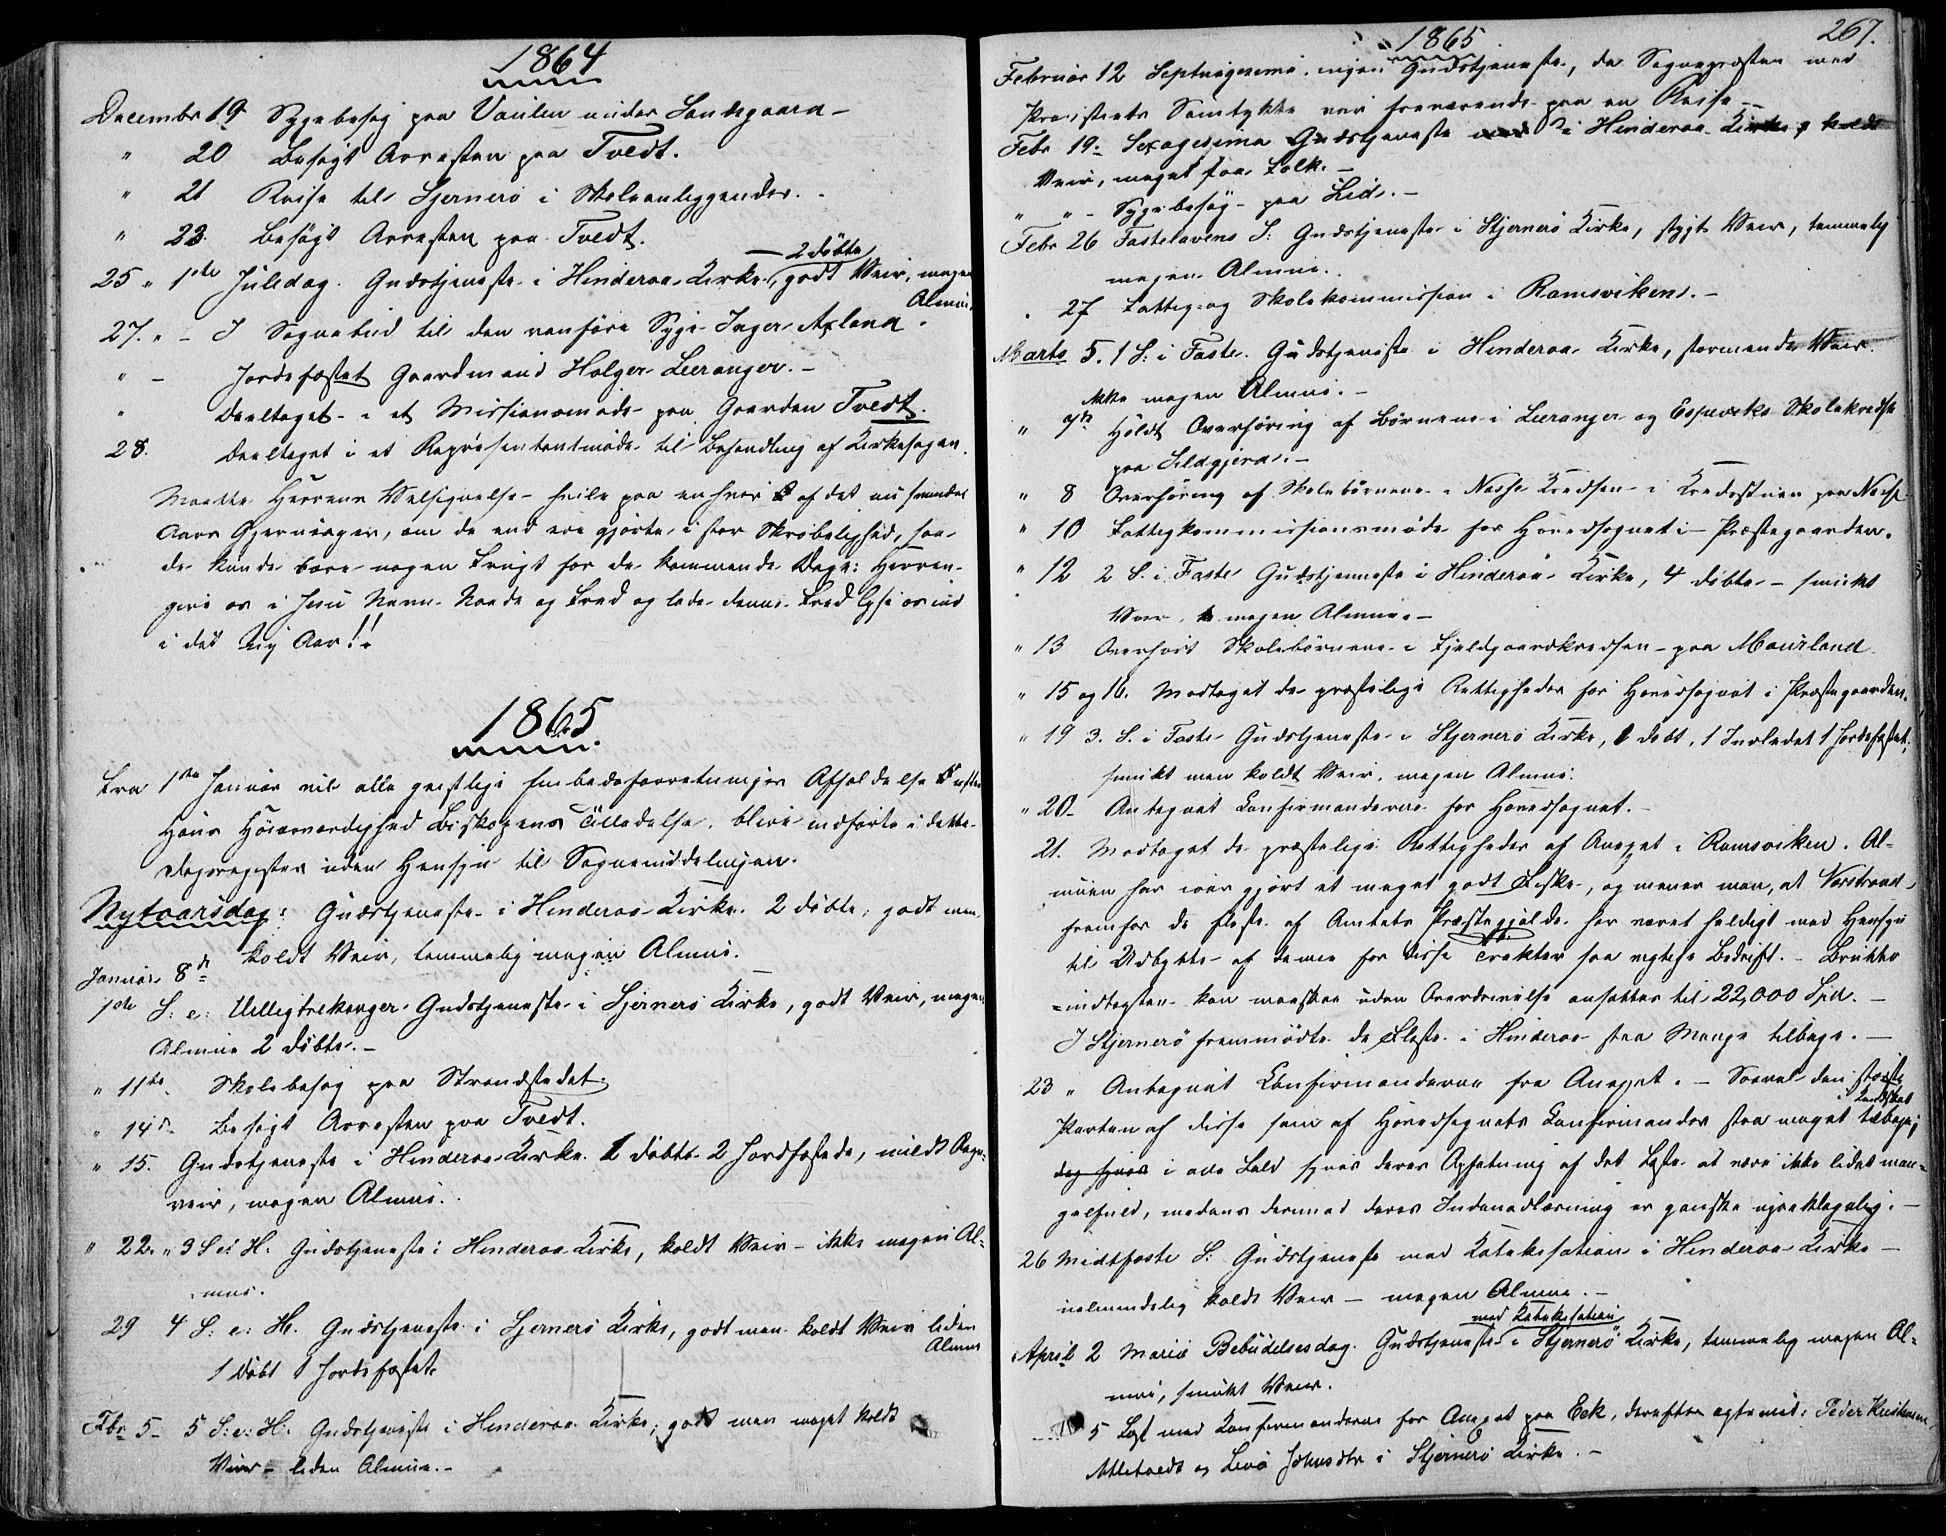 1864
Decembr 19 Sygebesøg paa Vaulen under Sandsgaard –
" 20 Besøgt Arresten paa Tvedt.
" 21 Reise til Sjernerö i Skoleanliggender. –
" 23. Besøgt Arresten paa Tvedt.
2 döbte
25 " 1ste Juledag. Gudstjeneste i Hinderaa Kirke, godt Veir, megen
Almue,
27. " – I Sognebud til den vanføre Syge Inger Axland.
" – Jordefæstet Gaardmand Holger Leeranger. –
" Deeltaget i et Missionsmøde paa Gaarden Tvedt.
28. Deeltaget i et Repræsentantmøde til Behandling af Kirkesagen.
Maatte Herrens Velsignelse hvile paa enhver af det nu svundne
Aars Gjerninger, om de end ere gjorte i stor Skrøbelighed, saa
de kunde bære nogen Frugt for de kommende Dage: Herren
give os i Jesu Navn Naade og Fred og lade denne Fred lyse os ind
i det Ny Aar!!
1865.
Fra 1ste Januar vil alle geistlige Embedsforretninger efter
Hans Höiærværdighed Biskopens Tilladelse, blive indførte i dette
Dagsregister uden Hensyn til Sogneinddelingen.
Nytaarsdag: Gudstjeneste i Hinderaa Kirke. 2 döbte, godt men
koldt Veir, temmelig megen Almue.
Januar 8de
1ste S: e: Helligtrekonger Gudstjeneste i Sjernerö Kirke, godt Veir, megen
Almue 2 döbte. –
" 11te Skolebesøg paa Strandstedet.
" 14de Besøgt Arresten paa Tvedt.
" 15. Gudstjeneste i Hinderaa Kirke. 1 döbte 2 Jordfæstede, mildt Regn-
veir, megen Almue.
" 22. " 3 S e: H. Gudstjeneste i Hinderaa Kirke, koldt Veir – ikke megen Al-
mue.
29 4 S: e: H. Gudstjeneste i Sjernerö Kirke, godt men koldt Veir liden
Almue
1 Döbt 1 Jordefæstet
Fbr 5 – 5 S: e: H: Gudstjeneste i Hinderaa Kirke, godt men meget koldt
Veir – liden Almue. –
267.
1865
Februar 12 Septuagesima ingen Gudstjeneste, da Sognepræsten med
Provstiets Samtykke var fraværende paa en Reise –
Febr 19. Sexagesima Gudstjeneste i Hinderaa Kirke, koldt
Veir, meget faa Folk. –
" " – Sygebesøg paa Lid. –
Febr 26 Fastelavens S: Gudstjeneste i Stjernerö Kirke, stygt Veir, temmelig
megen Almue.
" 27 Fattig- og Skolekommission i Ramsviken. –
Marts 5. 1 S: i Faste. Gudstjeneste i Hinderaa Kirke, stormende Veir.
ikke megen Almue. –
" 7de Höldt Overhöring af Börnene i Leeranger og Espeviks Skolekredse
paa Sildgjerde. –
" 8 Overhöring af Skolebörnene i Næsse Kredsen i Kredsstuen paa Næsse
" 10 Fattigkommissionsmöde for Hovedsognet i Præstegaarden.
" 12 2 S. i Faste Gudstjeneste i Hinderaa Kirke, 4 döbte – smukt
Veir, megen Almue. –
" 13 Overhört Skolebörnene i Fjeldgaardkredsen paa Maurland.
" 15 og 16. Modtaget de præstelige Rettigheder for Hovedsognet i Præstegaarden.
" 19 3. S. i Faste Gudstjeneste i Stjernerö Kirke, 1 döbt, 1 Indledet 1 Jordefæstet.
smukt men koldt Veir, megen Almue.
" 20 – Antegnet Confirmanderne for Hovedsognet. –
21. Modtaget de præstelige Rettigheder af Anexet i Ramsviken. Al-
muen har iaar gjort et meget godt Fiske, og mener man, at Nærstrand
fremfor de fleste af Amtets Præstegjelde har været heldigt med Hensyn
til Udbyttet af denne for disse Trakter saa vigtige Bedrift. – Brutto
indtægten kan maaskee uden Overdrivelse ansættes til 22,000 Spd. –
I Stjernerö fremmödte de Fleste i Hinderaa staa Mange tilbage. –
23 " Antegnet Confirmanderne fra Anexet. – Saavel den störste
i Kundskab
Parten af disse som af Hovedsognets Confirmander staa meget tilbage;
i alle Fald synes deres Opfatning af det Læste at være ikke lidet man-
gelfuld, medens derimod deres Indenadlæsning er ganske upaaklagelig. –
26 Midtfaste S: Gudstjeneste med Katekisation i Hinderaa Kirke –
ualmindelig koldt Veir – megen Almue. –
med Katekisation
April 2 Mariæ Bebudelsesdag. Gudstjeneste i Stjernerö Kirke, temmelig megen Al-
mue, smukt Veir.
5 Læst med Confirmanderne for Anexet paa Eek, derefter ægteviet: Peder Kristensen
Atletvedt og Johnsdtr i Stjernerö Kirke. –